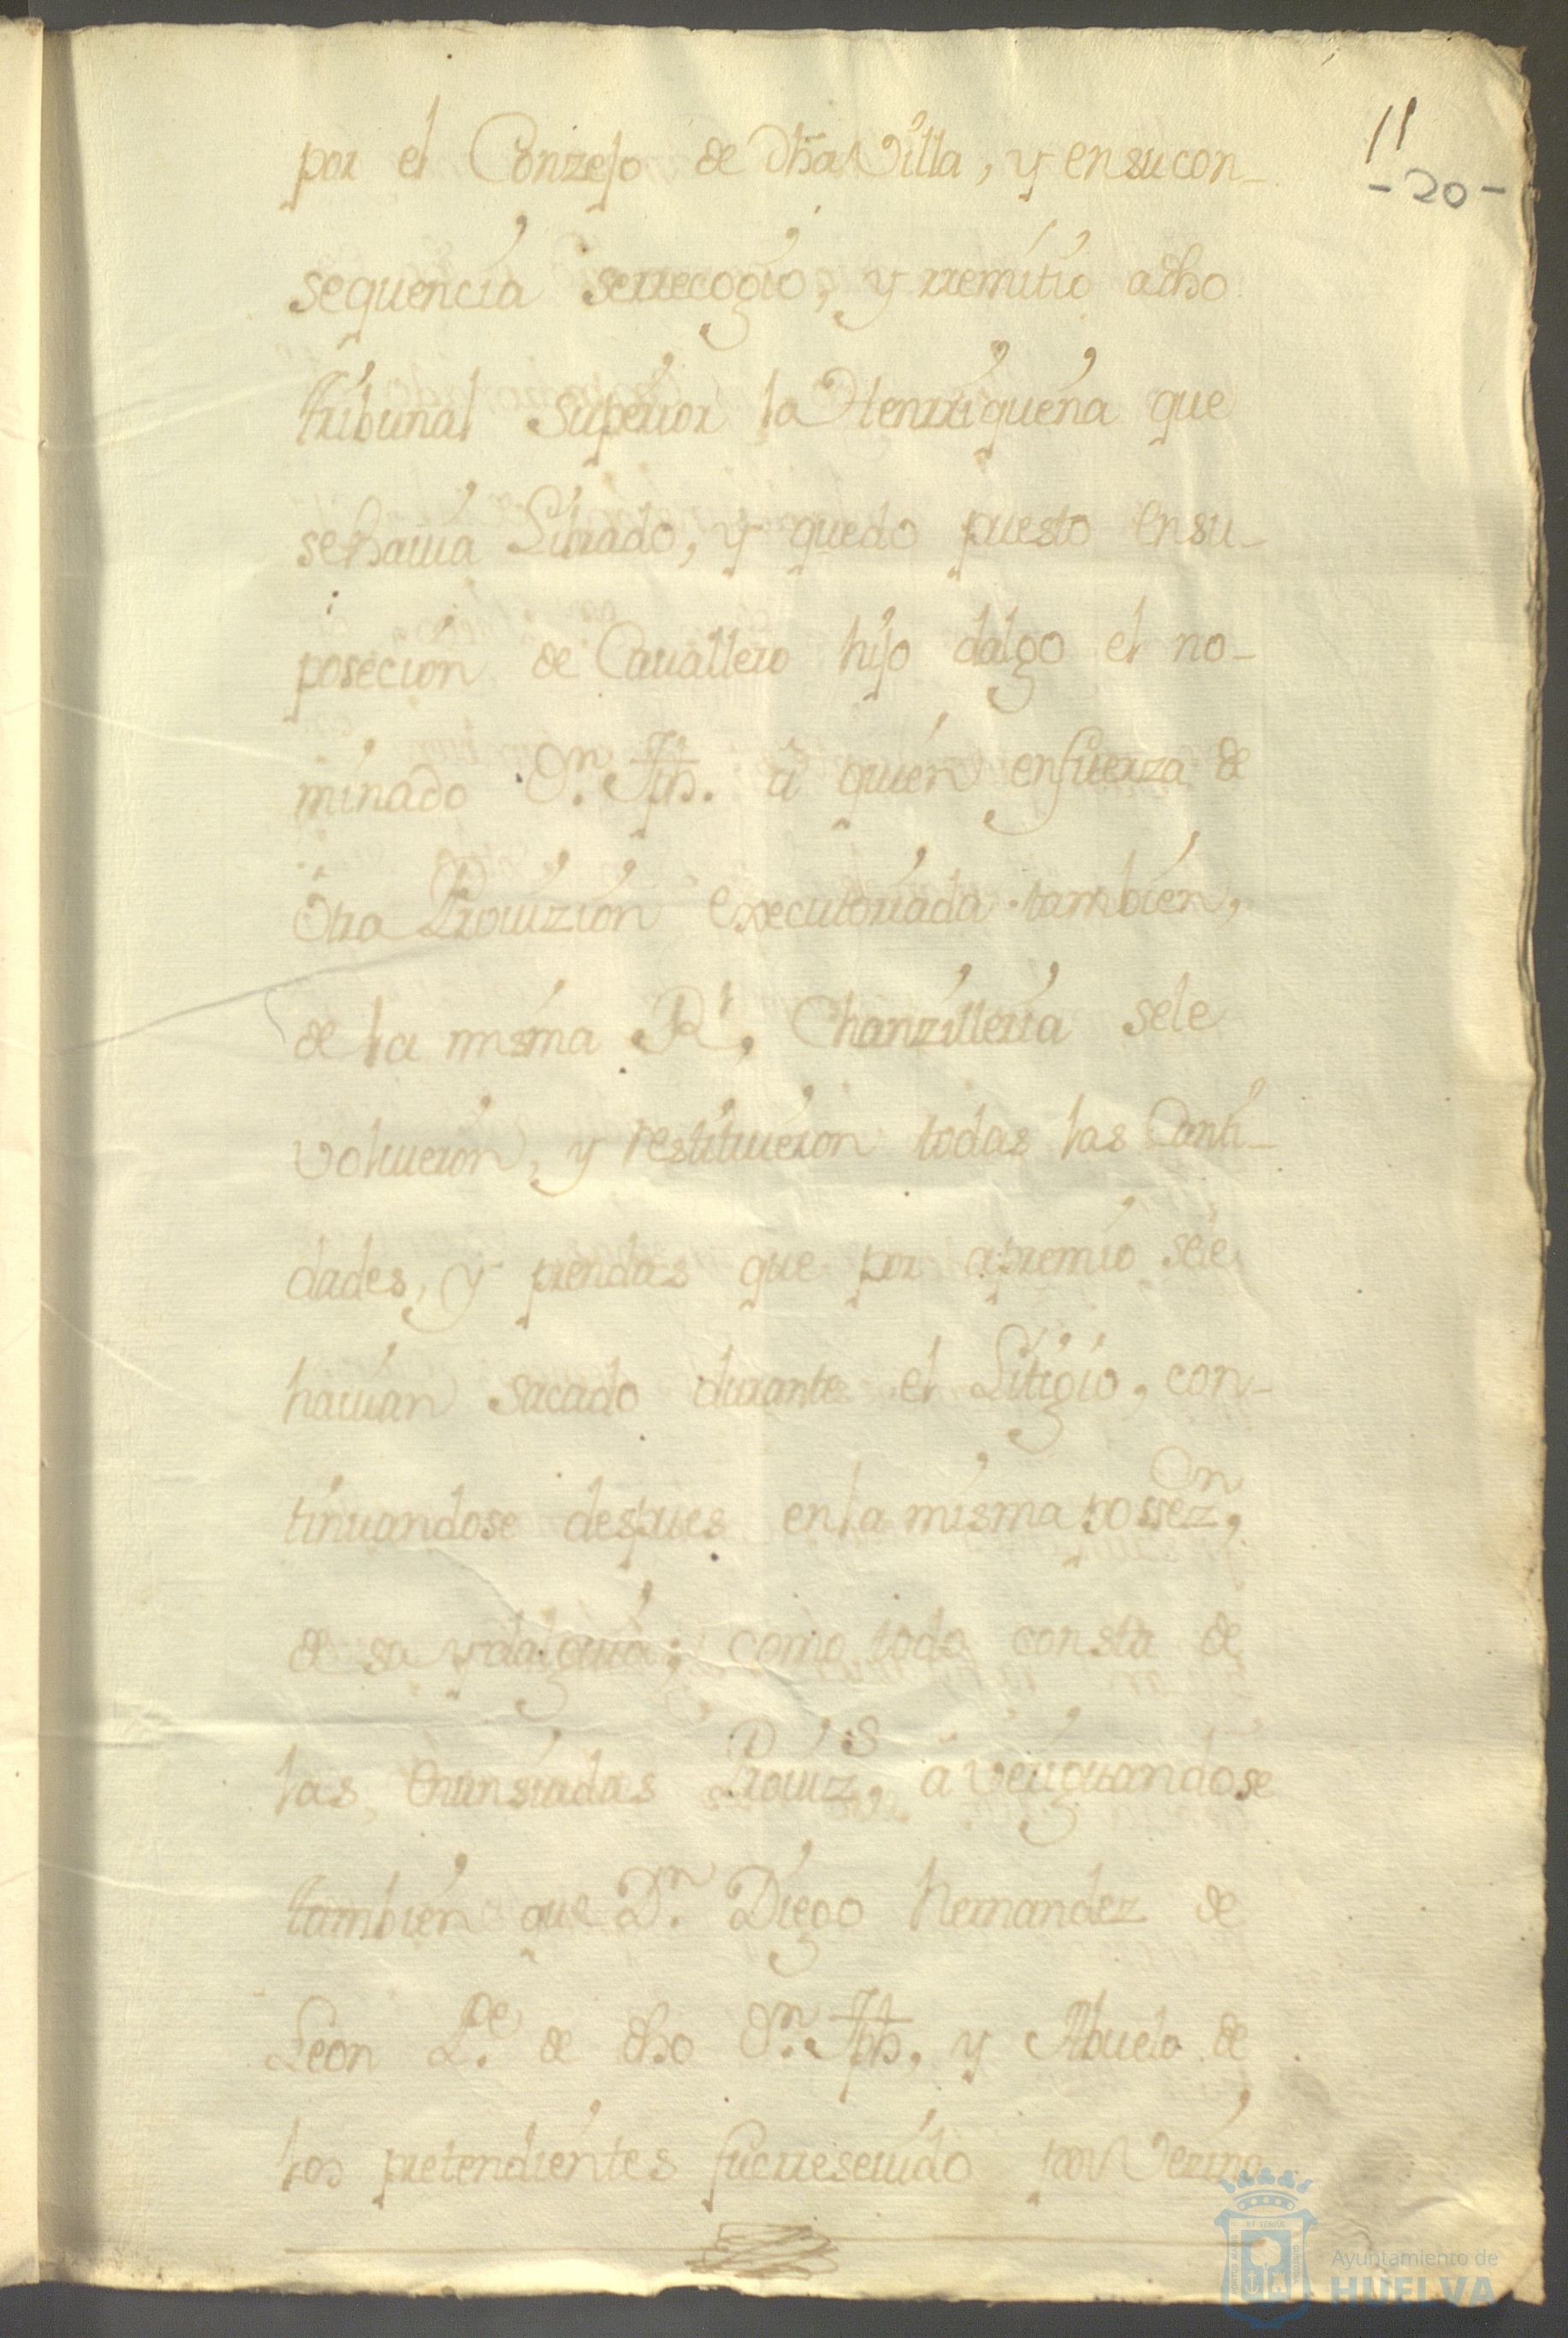 11
-20-
por el Conzejo de dha Villa, y ensucon-
sequencia serrecogio, y rremitio adho
tribunal superior la Henrriqueña que
sehauia Librado, y quedo puesto ensu-
poseción de Cauallero hijo dalgo el no-
minado Dn. Jph. a quien enfuerza de
otra Prouizion executoriada tambien,
de la misma Rl. Chanzilleria sele
voluieron, y restituieron todas las Canti-
dades, y prendas que por apremio sele
hauian sacado durante el Litigio, con-
tinuandose despues enla misma possezon,
de su ydalguia; como todo consta de
las enunsiadas Prouizs, aueriguandose
tambien que Dn. Diego Hernandez de
Leon Pe. de dho Dn. Jph. y Abuelo de
los pretendientes fuerreseuido por Vezino
Ayuntamiento de
HUELVA